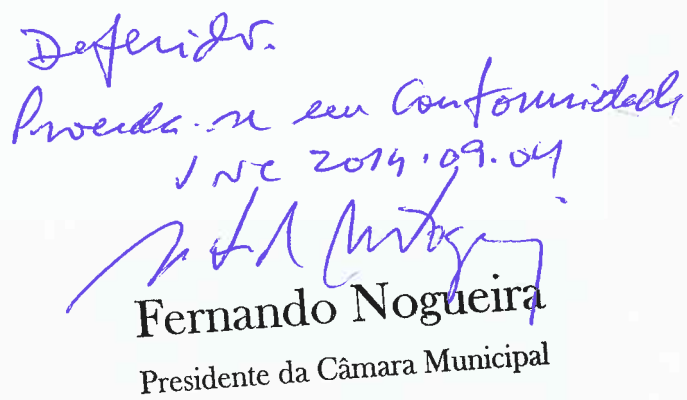 Deferido.
Proceda-se em Conformidade
VNC 2014.09.04
Fernando Nogueira
Presidente da Câmara Municipal